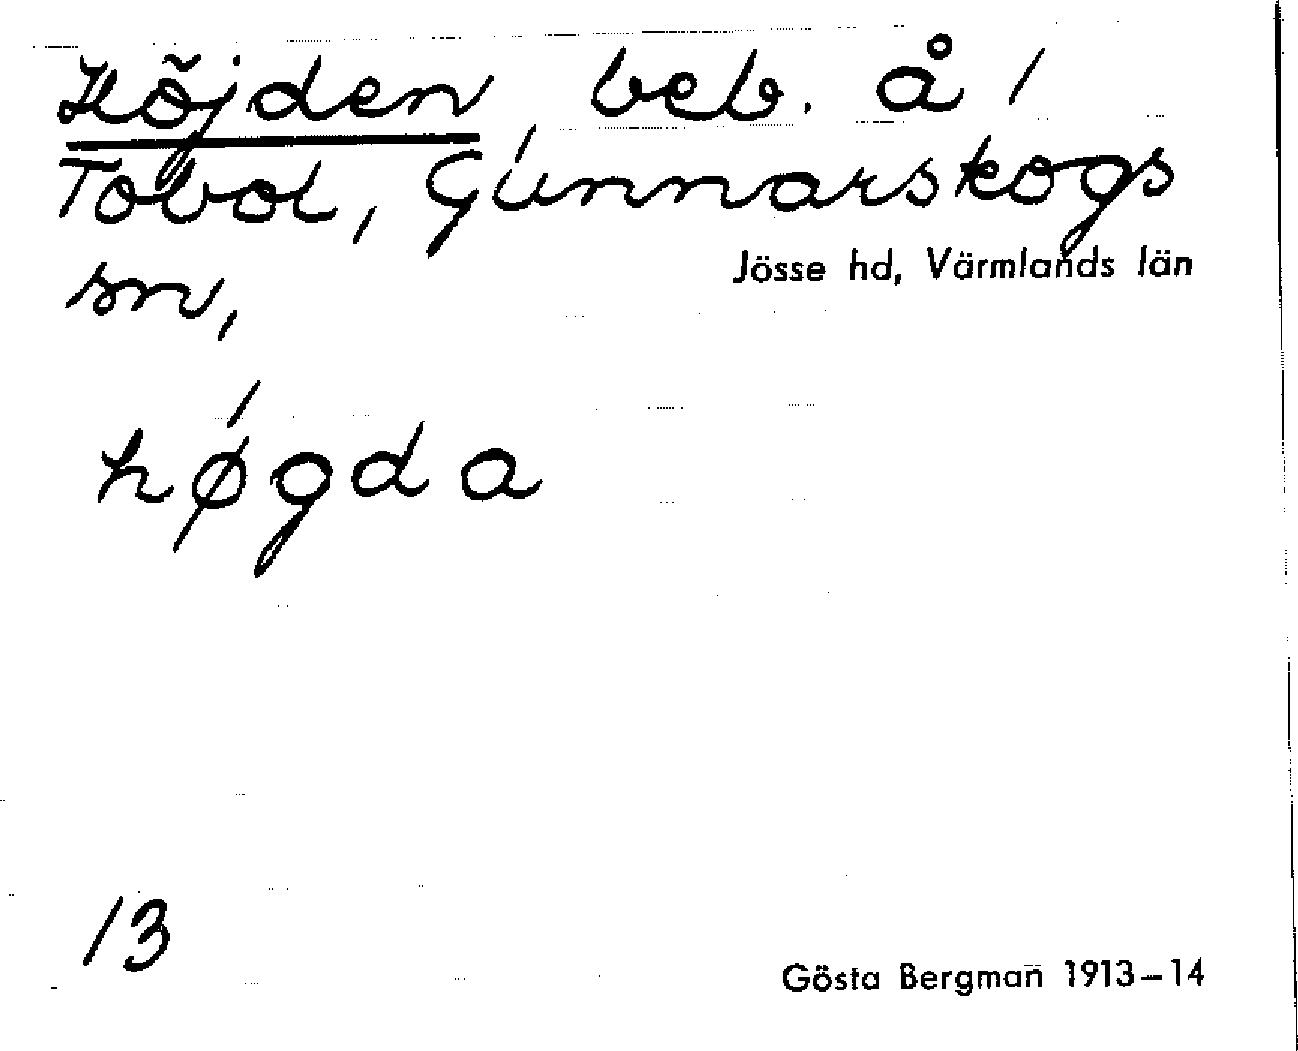 Höjden beb. å 1
Tobol, Gunnarskogs
Jösse hd, Värmlands län
sn,
høgda
13
Gösta Bergman 1913–14